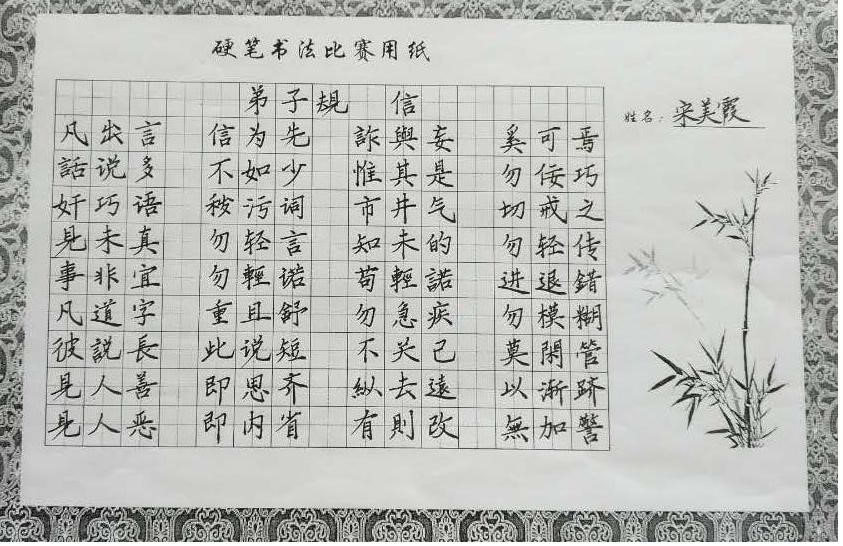 硬笔书法比赛用纸
弟子规 信
姓名：宋美霞
凡出言 信为先 詐與妄 奚可焉
話说多 不如少 惟其是 勿佞巧
奸巧语 秽污词 市井气 切戒之
見未真 勿轻言 知未的 勿轻传
事非宜 勿輕诺 苟輕諾 进退錯
凡道字 重且舒 勿急疾 勿模糊
彼說長 此说短 不关己 莫閑管
見人善 即思齐 縱去遠 以渐跻
見人恶 即内省 有則改 無加警